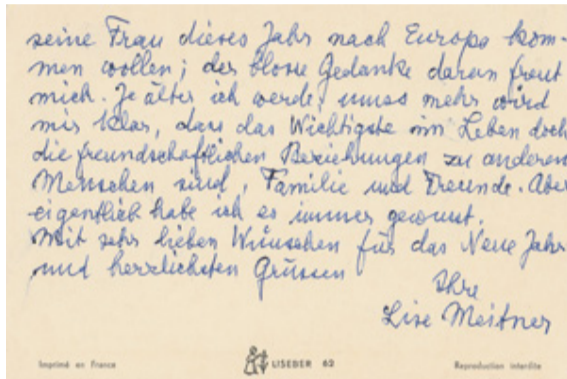 seine Frau dieses Jahr nach Europa kom-
men wollen; der blosse Gedanke daran freut
mich. Je älter ich werde, umso mehr wird
mir klar, dass das Wichtigste im Leben doch
die freundschaftlichen Beziehungen zu anderen
Menschen sind, Familie und Freunde. Aber
eigentlich habe ich es immer gewusst.
Mit sehr lieben Wünschen für das Neue Jahr
und herzlichsten Grüssen
Ihre
Lise Meitner
Imprimé en France LISEBER 62 Reproduction interdite